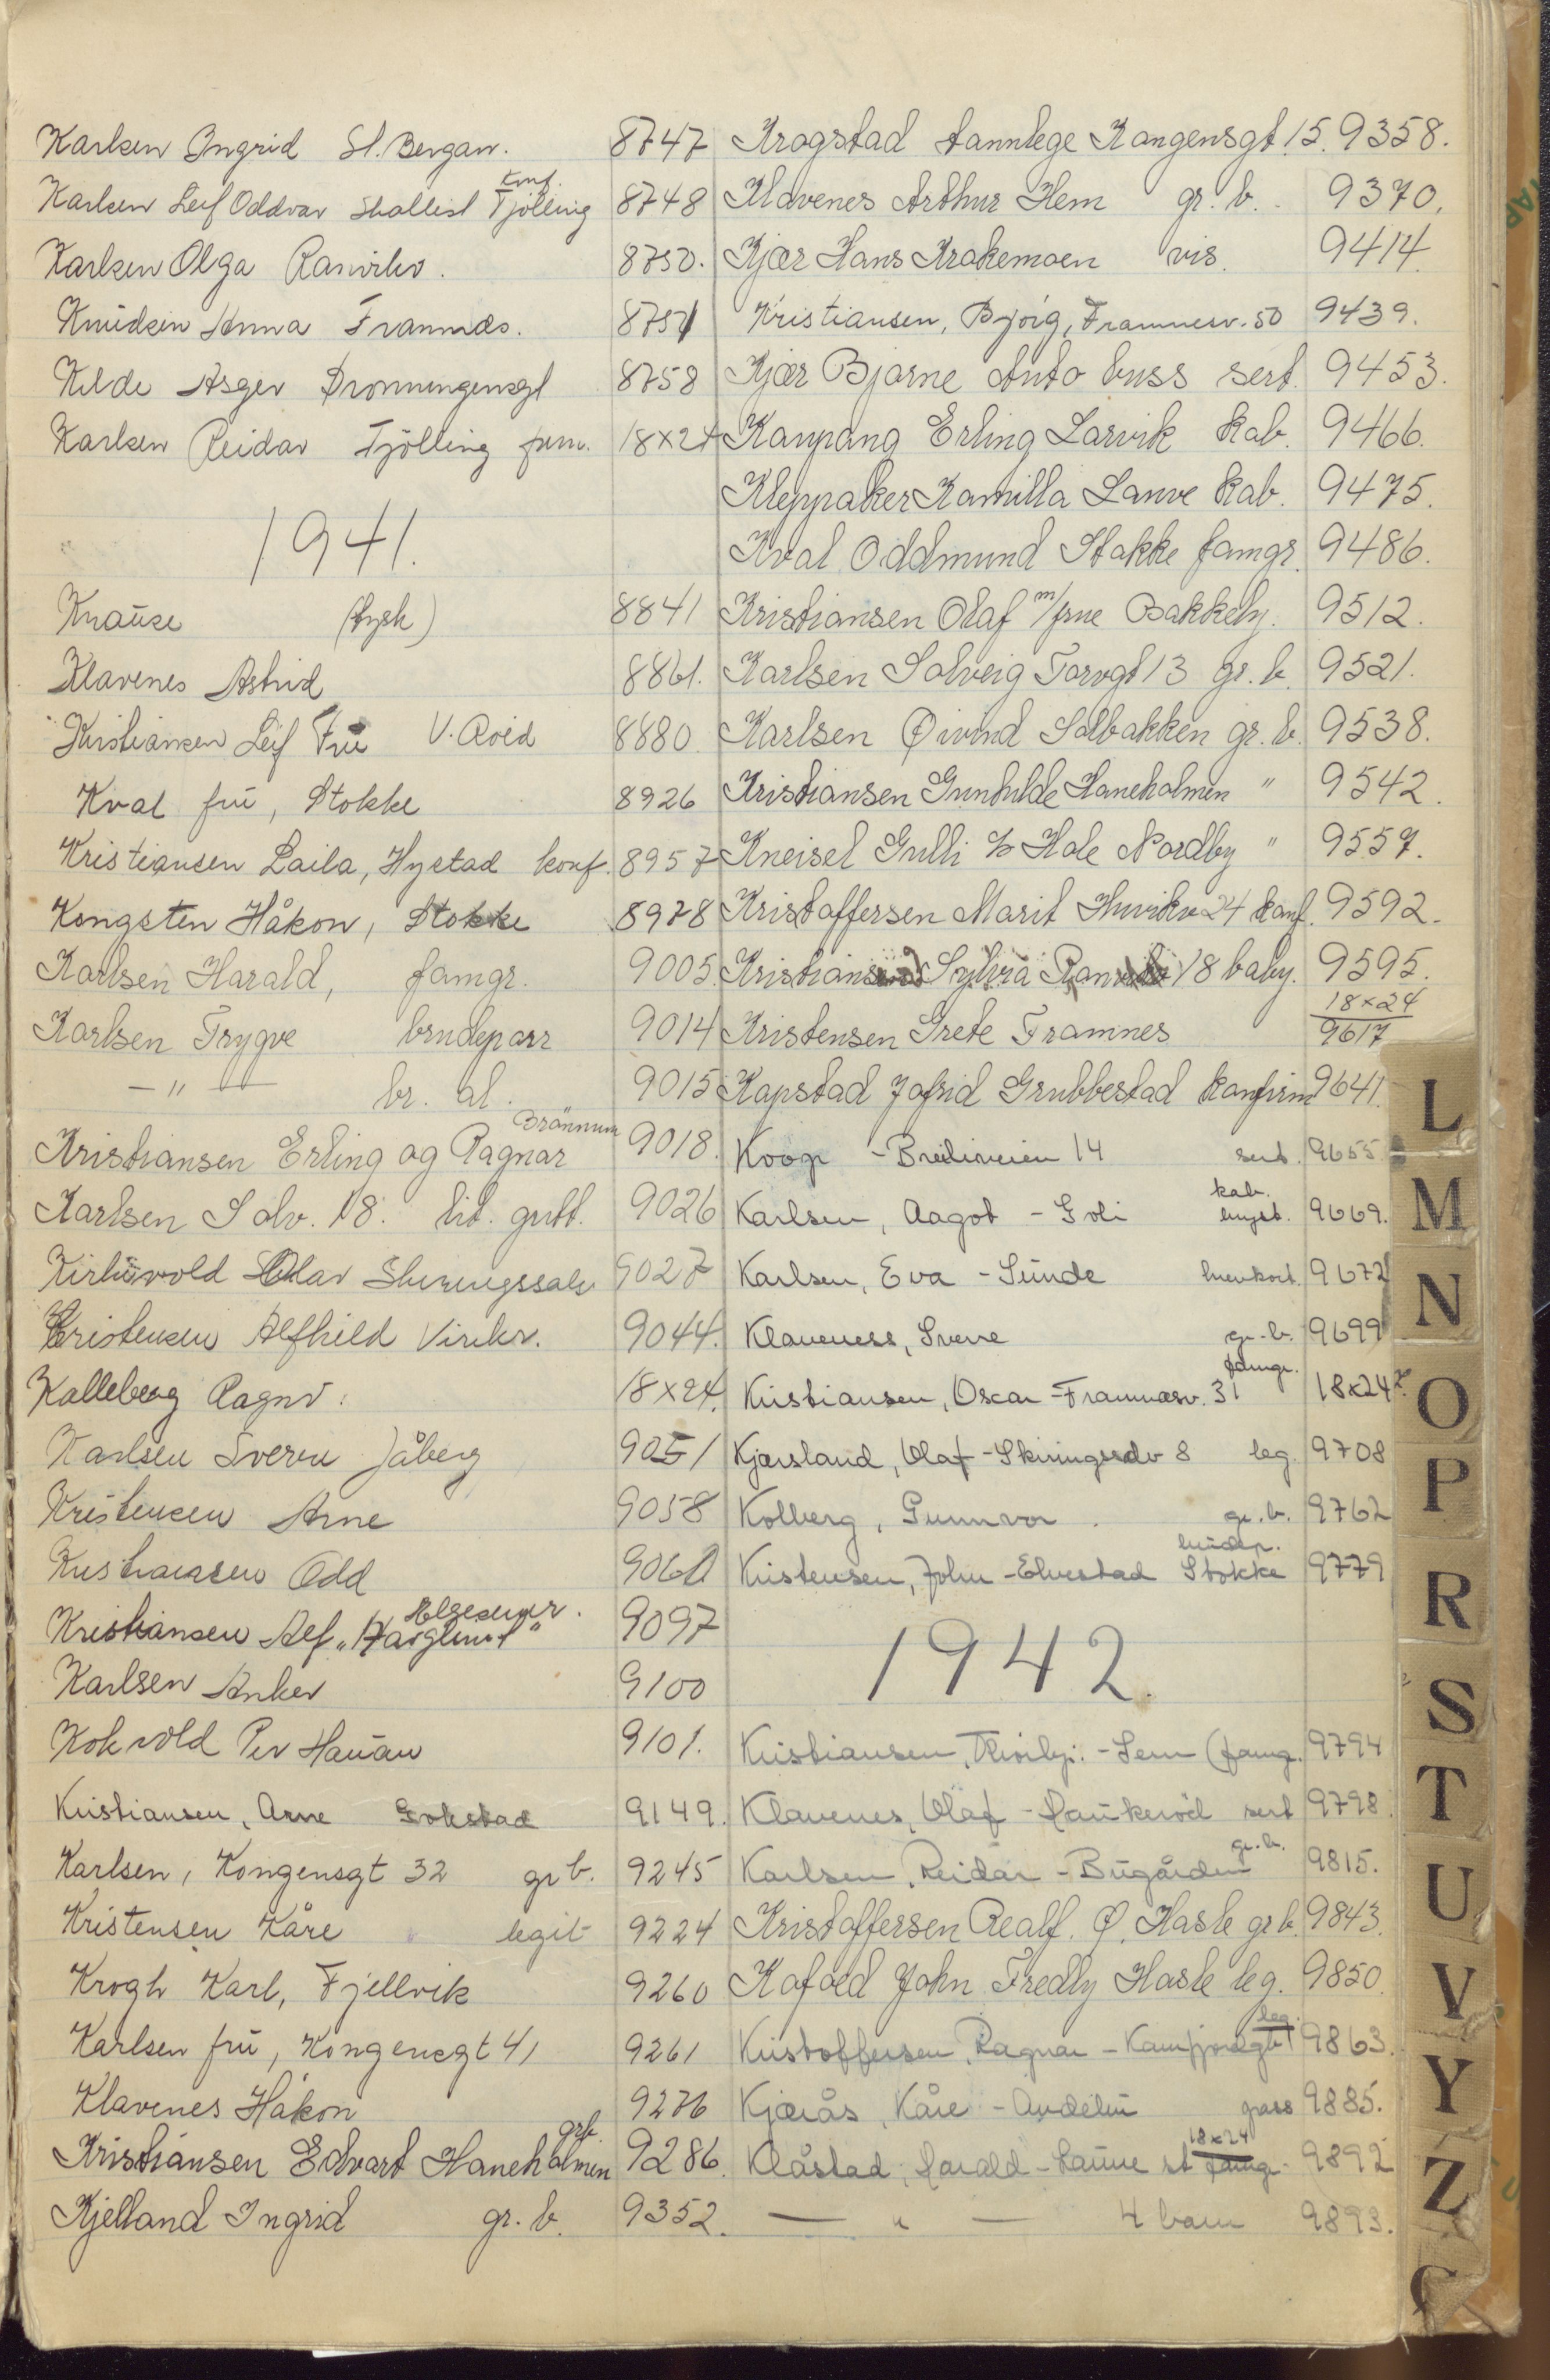 Karlsen Ingrid St. Bergan. 8747
Karlsen Leif Oddvar Skallest Tjölling konf. 8748
Karlsen Olga Ranvikv. 8750.
Knudsen Anna Framnæs. 8751
Kilde Asger Dronningensgt 8758
Karlsen Reidar Tjölling fam. 18x24
1941.
Knause (tysk) 8841
Klavenes Astrid 8861.
Kristiansen Leif Fru V. Röed 8880
Kval fru, Stokke 8926
Kristiansen Laila, Hystad konf. 8957
Kongsten Håkon, Stokke 8978
Karlsen Harald, famgr. 9005
Karlsen Trygve brudeparr 9014
— " — br. al. 9015
Kristiansen Erling og Ragnar Brönnum 9018.
Karlsen Solv. 18. lit. gutt. 9026
Olav Skiringssalv 9027
Kristensen Alfhild Virikv. 9044.
Kalleberg Ragnv. 18x24.
Karlsen Sverre Jåberg 9051
Kristensen Arne 9058
Kristiansen Odd
Kristiansen Alf 9097
Karlsen Anker 9100
Per Hauan 9101.
Kristiansen, Arne Gokstad 9149.
Karlsen, Kongensgt 32 gr b. 9245
Kristensen Kåre legit 9224
Krogh Karl, Fjellvik 9260
Karlsen fru, Kongensgt 41 9261
Klavenes Håkon 9276
Kristiansen Edvart Haneholmen grb. 9286.
Kjelland Ingrid gr. b. 9352.
Krogstad tannlege Kongensgt. 15. 9358.
Klavenes Arthur Hem gr. b. 9370.
Kjær Hans Krokemoen vis. 9414
Kristiansen, Bjørg, Framnesv. 50 9439.
Kjær Bjarne Auto buss sert. 9453.
Kaupang Erling Larvik kab. 9466.
Kleppaker Kamilla Lauve kab. 9475.
Kval Oddmund Stokke famgr. 9486.
Kristiansen Olaf m/frue Bakkely. 9512.
Karlsen Solveig Torvgt 13 gr. b. 9521.
Karlsen Øivind Solbakken gr. b. 9538.
Kristiansen Gunhilde Haneholmen " 9542.
Kneisel Gulli c/o Hole Nordby " 9557.
Kristoffersen Marit Huvikv 24 konf. 9592.
Sylvia 18 baby. 9595.
Kristensen Grete Framnes 18x24 9617
Kapstad Jofrid Grubbestad konfirm 9641.
14 sert. 9655
Karlsen, Aagot - Goli kab. bryst. 9669.
Karlsen, Eva - Sunde 9672
Klaveness, Sverre gr. b. 9699
Kristiansen, Oscar - Framnæsv. 31 famgr. 18x24
Kjærsland, Olaf - Skiringssalv 8 leg. 9708
Kolberg, Gunnvor gr. b. 9762
Kristensen, John - Elvestad Stokke brudep. 9779
1942.
Kristiansen, - Sem (famg. 9794
Klavenes, Olaf - Haukeröd sert 9798.
Karlsen, Reidar - Bugården gr. b. 9815.
Kristoffersen Realf. Ø. Hasle gr b. 9843.
Kofoed John Fredly Hasle leg. 9850.
Kristoffersen, Ragnar - leg. 9863.
Kjærås, Kåre - pass 9885.
Klåstad, Harald - Lauve st famgr. 18x24 9892
— " — 4 barn 9893.
L
M
N
O
P
R
S
T
U
V
Y
Z